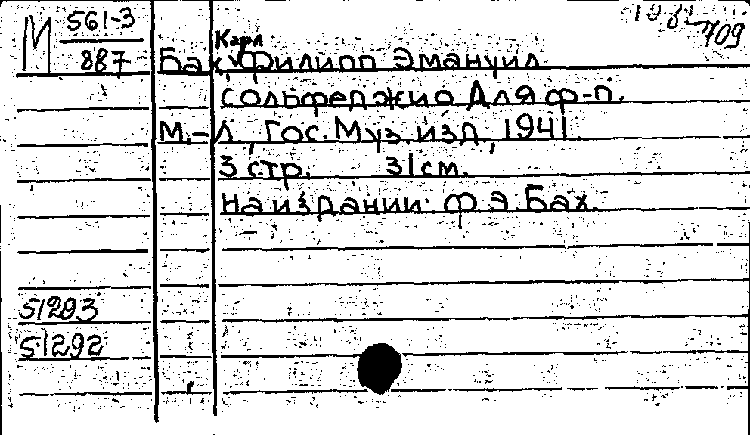 М 561-3
887
Карл
Бах, Филипп Эмануил
Сольфеджио для ф-п.
М.-Л., Гос. Муз. изд, 1941
3 стр. 31 см.
На издании: Ф. Э. Бах.
51293
51292